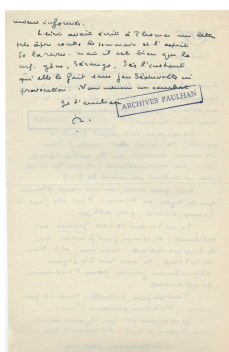 mieux informés.
Leiris avait écrit à Thomas une lettre
très âpre contre le sommaire et l'esprit
de la revue. mais il est bien que la
gêne, dérange, dès l'instant
qu'elle le fait sans jeu ni
provocation. Nous menons un combat
Je t'embrasse
ARCHIVES PAULHAN